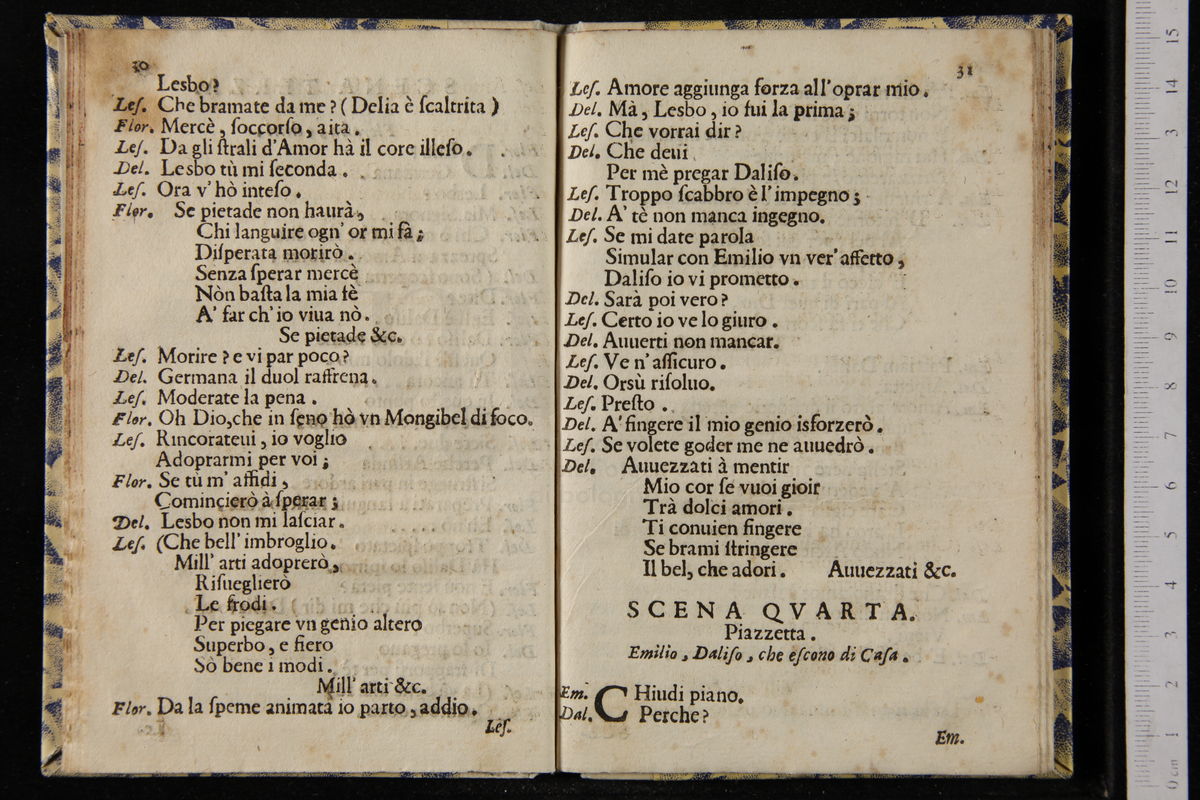 30
Lesbo?
Leſ. Che bramate da me? (Delia è ſcaltrita)
Flor. Mercè, ſoccorſo, aita.
Leſ. Da gli ſtrali d'Amor hà il core illeſo.
Del. Lesbo tù mi ſeconda.
Leſ. Ora v' hò inteſo.
Flor. Se pietade non haurà,
Chi languire ogn' or mi fà;
Diſperata morirò.
Senza ſperar mercè
Nòn baſta la mia fè
A' far ch' io viua nò.
Se pietade &c.
Leſ. Morire? e vi par poco?
Del. Germana il duol raffrena.
Leſ. Moderate la pena.
Flor. Oh Dio, che in ſeno hò vn Mongibel di foco.
Leſ. Rincorateui, io voglio
Adoprarmi per voi;
Flor. Se tù m' affidi,
Comincierò à ſperar;
Del. Lesbo non mi laſciar.
Leſ. (Che bell' imbroglio.
Mill' arti adoprerò,
Riſueglierò
Le frodi.
Per piegare vn genio altero
Superbo, e fiero
Sò bene i modi.
Mill' arti &c.
Flor. Da la ſpeme animata io parto, addio.
Leſ.
31
Leſ. Amore aggiunga forza all'oprar mio.
Del. Mà, Lesbo, io fui la prima;
Leſ. Che vorrai dir?
Del. Che deui
Per mè pregar Daliſo.
Leſ. Troppo ſcabbro è l'impegno;
Del. A' tè non manca ingegno.
Leſ. Se mi date parola
Simular con Emilio vn ver' affetto,
Daliſo io vi prometto.
Del. Sarà poi vero?
Leſ. Certo io ve lo giuro.
Del. Auuerti non mancar.
Leſ. Ve n' aſſicuro.
Del. Orsù riſoluo.
Leſ. Preſto.
Del. A' fingere il mio genio isforzerò.
Leſ. Se volete goder me ne auuedrò.
Del. Auuezzati à mentir
Mio cor ſe vuoi gioir
Trà dolci amori.
Ti conuien fingere
Se brami ſtringere
Il bel, che adori. Auuezzati &c.
SCENA QVARTA.
Piazzetta.
Emilio, Daliſo, che eſcono di Caſa.
Em. CHiudi piano.
Dal. Perche?
Em.
0 cm 1 2 3 4 5 6 7 8 9 10 11 12 13 14 15